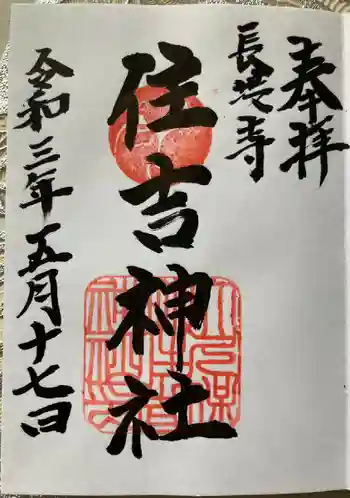 奉拝
長浩寺
住吉神社
令和三年五月十七日